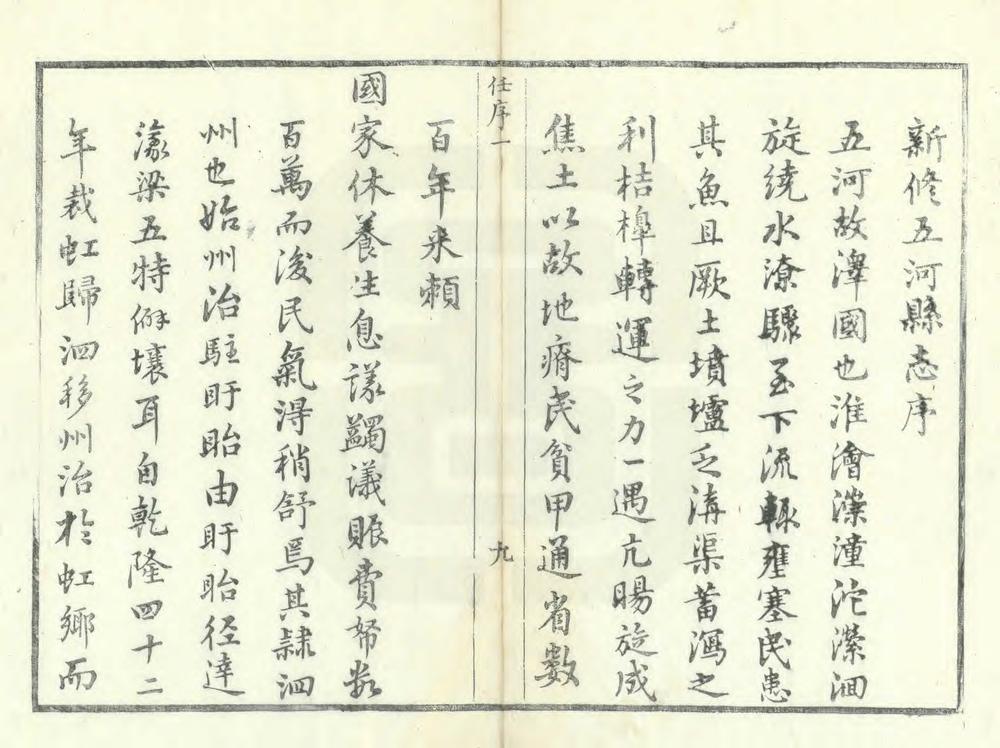 新修五河縣志序
五河故澤國也淮澮漴潼沱漴洄
旋繞水潦驟至下流輒壅塞民患
其魚且厥土墳壚乏溝渠蓄瀉之
利桔槔轉運之力一遇亢暘旋成
焦土以故地瘠民貧甲通省數
任序一
九
百年来賴
國家休養生息議蠲議賑費帑数
百萬而後民氣得稍舒焉其隸泗
州也始州治駐盱眙由盱眙徑達
濠梁五特僻壤耳自乾隆四十二
年裁虹歸泗移州治於虹鄉而